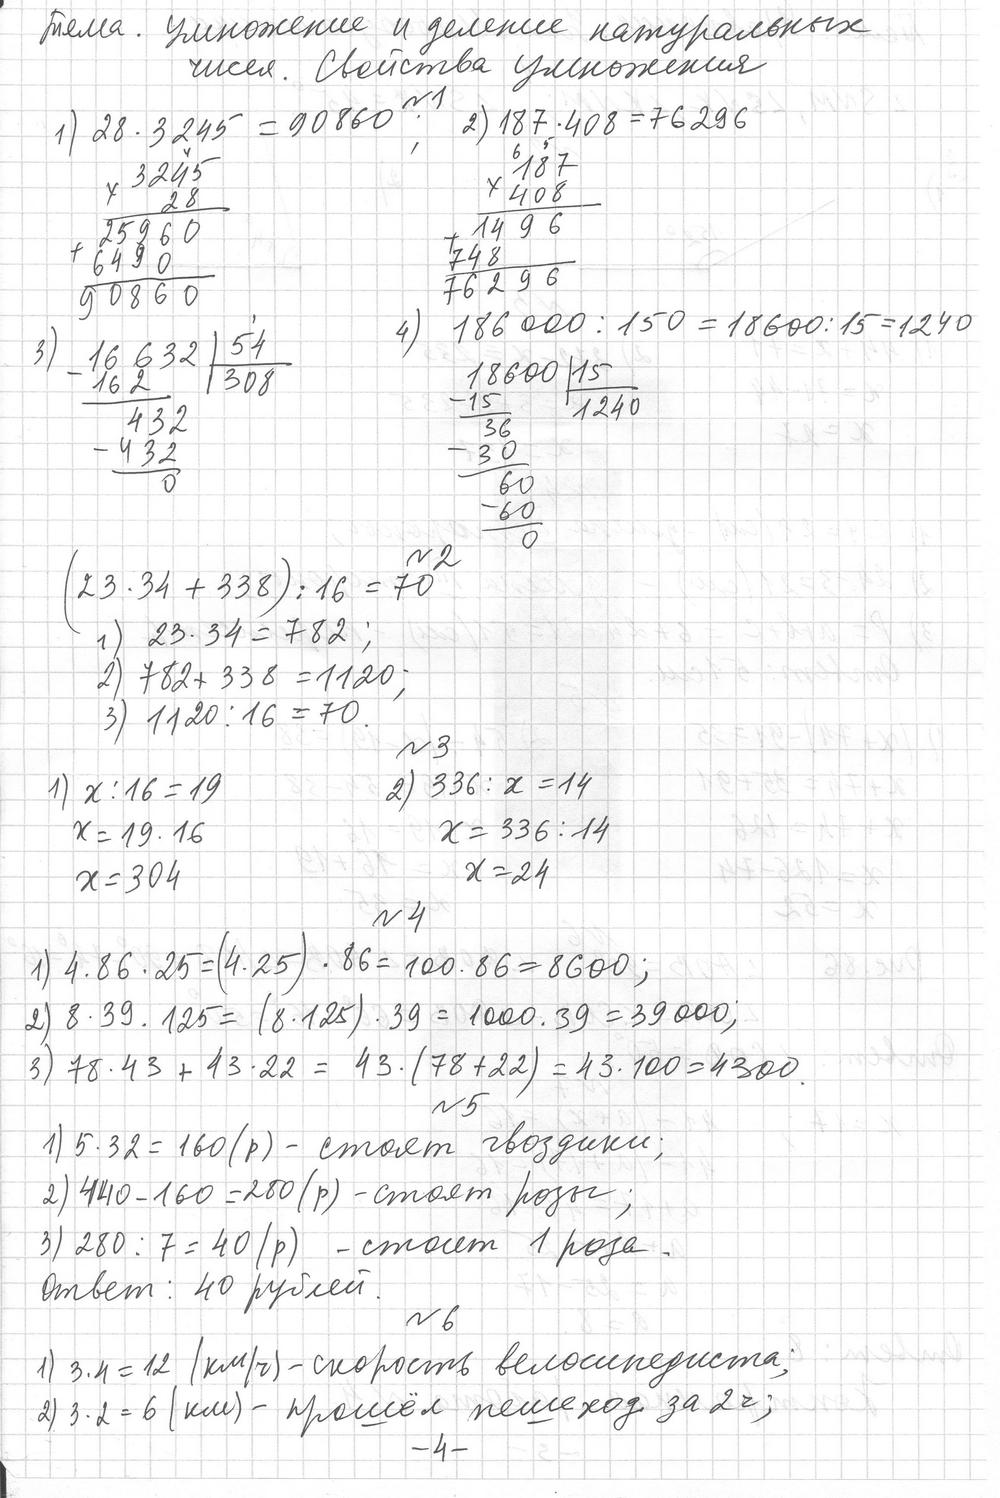 Тема. Умножение и деление натуральных
чисел. Свойства умножения
№1
1) 28·3245 = 90860; 2) 187·408 = 76296
4 6 5
3245 187
× 28 × 408
25960 1496
+ 6490 + 748
90860 76296
3) 16632 | 54 4) 186000 : 150 = 18600 : 15 = 1240
- 162 | 308 18600 | 15
432 - 15 | 1240
- 432 36
0 - 30
60
- 60
0
№2
(23·34 + 338) : 16 = 70
1) 23·34 = 782;
2) 782 + 338 = 1120;
3) 1120 : 16 = 70.
№3
1) x : 16 = 19 2) 336 : x = 14
x = 19·16 x = 336 : 14
x = 304 x = 24
№4
1) 4·86·25 = (4·25)·86 = 100·86 = 8600;
2) 8·39·125 = (8·125)·39 = 1000·39 = 39000;
3) 78·43 + 43·22 = 43·(78+22) = 43·100 = 4300.
№5
1) 5·32 = 160 (р) - стоят гвоздики;
2) 440 - 160 = 280 (р) - стоят розы;
3) 280 : 7 = 40 (р) - стоит 1 роза.
Ответ: 40 рублей.
№6
1) 3·4 = 12 (км/ч) - скорость велосипедиста;
2) 3·2 = 6 (км) - прошёл пешеход за 2 ч;
-4-